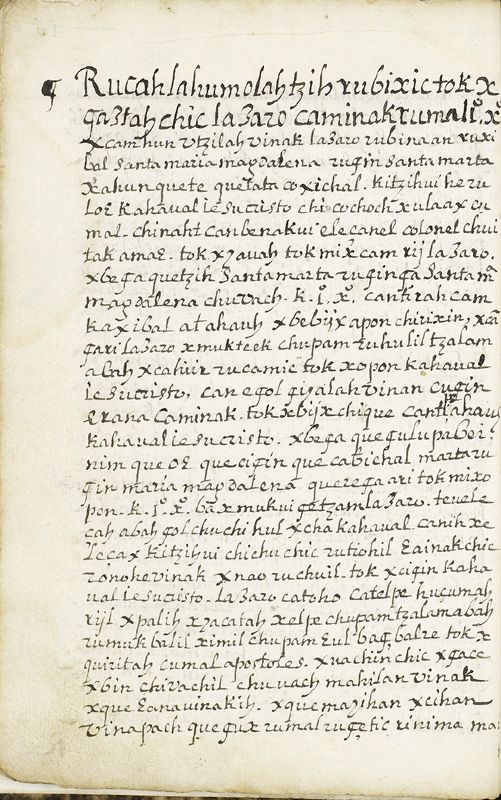 ¶ Rucahlahumolahtzih rubixic tok x
ga3tah chic la3aro caminak rumal i°. x°
xcam hun vtzilah vinak la3aro rubinaan ruxi
bal Santa maria maydalena rugin Santa marta
xa hun quete quetata coxichal. Kitzihui he ru
loE Kahaual iesucristo chi cochoch xulaax cu
mal. chinaht can benak ui ele canel colonel chui
tak amaE. tok xyauah tok mix cam rij la3aro.
xbega quetzih Santa marta ruginga Santa mã
maydalena chuuach. K. i°. x°. canti rah cam
ka xibal at ahauh xbebijx apon chirixin, xcã
gari la3aro xmukteek chupam ruhulil tzalam
abah xcahuir rucamic tok xopon kahaual
iesucristo, can egol gijalah vinan cugin
Erana caminak. tok xbijx chique canti ahau
kahaual iesucristo. xbega que gulupa bei.
nim que oE que cigin que cabichal marta ru
gin maria maydalena queregari tok mixo
pon. K. i°. x°. bax mukui getzam la3aro. teuele
cah abah gol chuchi hul xcha kahaual. canih xe
leçax kitzihui chichu chic rutiohil Eainak chic
ronohe vinak xnao ruchuil. tok xcigin kaha
ual iesucristo. la3aro catoho catelpe huçumah
rijl xpalih xyacatah xelpe chupam tzalam abah
rumuk balil ximil chupam Eul bag balre tok x
quiritah cumal apostoles. xuachin chic xgaçe
xbin chiuachil chuuach mahilan vinak
xque Eana vinakih. xque mayihan xcihan
vinapach que gux rumal rugetic rinima ma